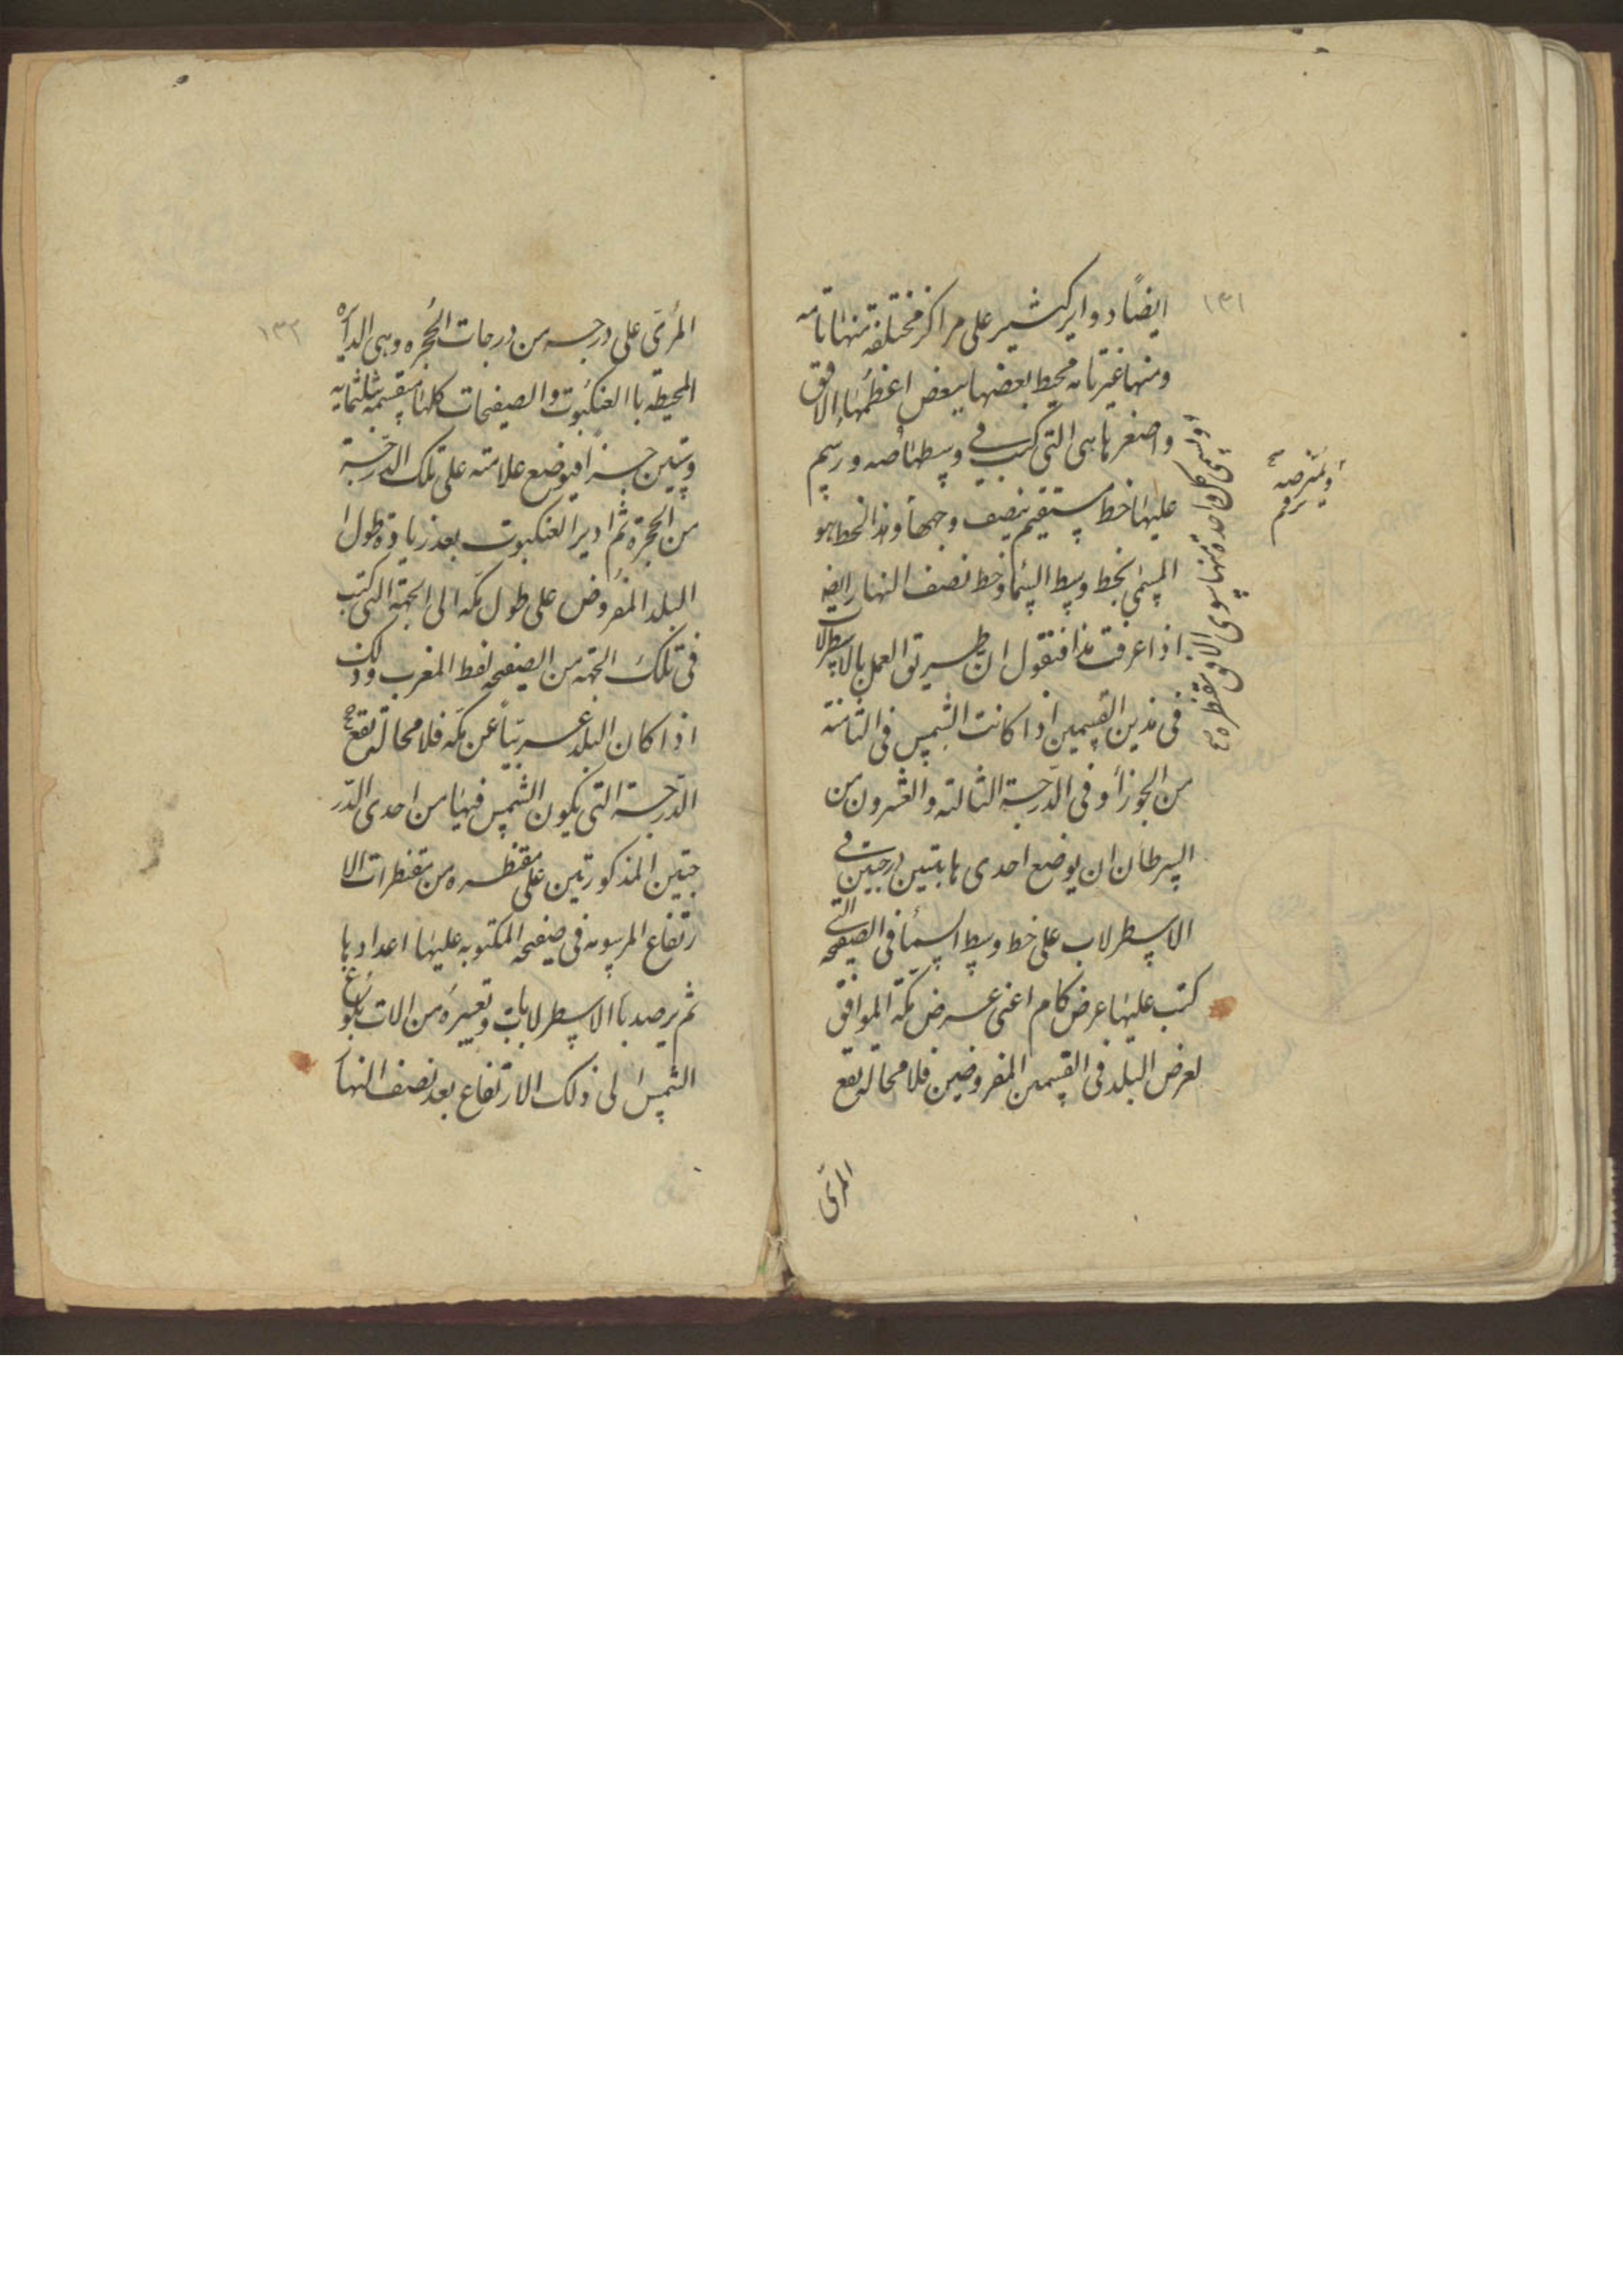 ١٣١
ايضًا دواير كثير على مراكز مختلفة منها تامه
ومنها غير تامه محيط بعضها ببعض اعظمها الافق
واصغرها هى التى كتب فى وسطها صه ورسم
عليها خط مستقيم ينصف وجهها وهذا الخط هو
المسمى بخط وسط السماء وخط نصف النهار ايضا
اذا عرفت هذا فنقول ان طريق العمل بالاسطرلاب
فى هذين القسمين اذا كانت الشمس فى الثامنة
من الجوزاء وفى الدرجة الثالثه والعشرون من
السرطان ان يوضع احدى هاتين درجتين فى
الاسطرلاب على خط وسط السماء فى الصفيحه التى
كتب عليها عرض كام اعنى عرض مكة الموافق
لعرض البلد فى القسمين المفروضين فلا محاله تقع
المرى
وتسمى كل واحدة منها سوى الافق مقنطره
١٣٢
المرى على درجه من درجات الحجره وهى الدايره
المحيطه باالعنكبوت والصفيحات كلها منقسمه بثلثمايه
وستين جزءا فيوضع علامته على تلك الدرجة
من الحجرة ثم ادير العنكبوت بعد زيادة طول ا
البلد المفروض على طول مكه الى الجهة التى كتب
فى تلك الجهه من الصفيحه لفظ المغرب وذلك
اذا كان البلد غربيًا عن مكه فلا محالة تقع
الدرجة التى يكون الشمس فيها من احدى الدر
جتين المذكورتين على مقنطره من مقنطرات الا
رتفاع المرسومه فى صفيحه المكتوبه عليها اعدادها
ثم يرصد باالاسطرلابات وغيره من الات بلوغ
الشمس الى ذلك الارتفاع بعد نصف النهار